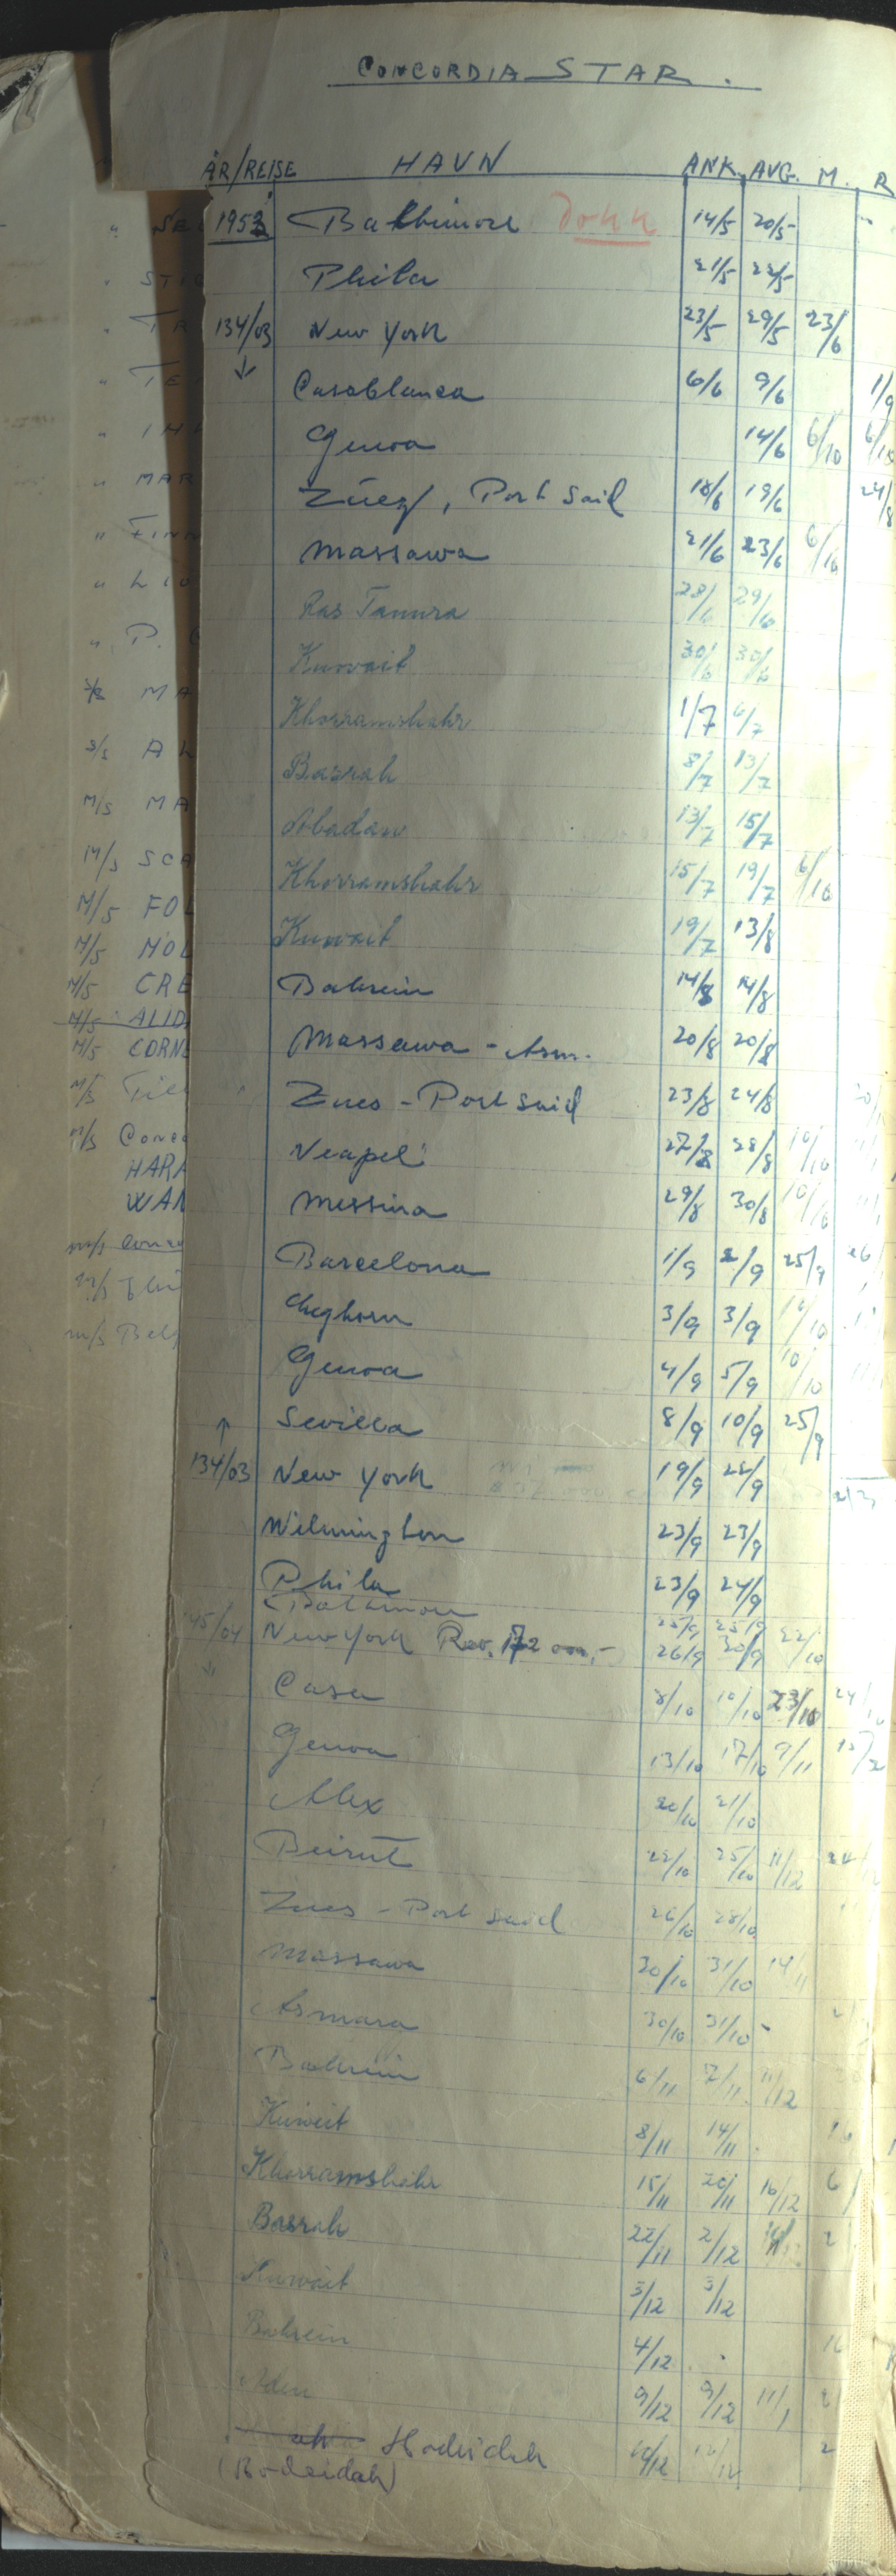 CONCORDIA STAR.
ÅR/REISE HAVN ANK. AVG. M. R
1953 Balthimore Dokk 14/5 20/5
Phila 21/5 22/5
134/03 New York 23/5 29/5 23/6
↓ Casablanca 6/6 9/6 1/9
Genoa 14/6 6/10 6/10
Zuez, Port Said 18/6 19/6 24/8
Massawa 21/6 23/6 6/10
Ras Tanura 28/6 29/6
Kuwait 30/6 30/6
Khorramshahr 1/7 6/7
Basrah 8/7 13/7
Abadan 13/7 15/7
Khorramshahr 15/7 19/7 6/10
Kuwait 19/7 13/8
Bahrein 14/8 14/8
Massawa - Asm. 20/8 20/8
Zues - Port Said 23/8 24/8
Neapel 27/8 28/8 10/10
Messina 29/8 30/8 10/10
Barcelona 1/9 2/9 25/9 26
Leghorn 3/9 3/9 10/10
Genoa 4/9 5/9 10/10
↑ Sevilla 8/9 10/9 25/9
134/03 New York 19/9 22/9
Wilmington 23/9 23/9
Phila 23/9 24/9
Baltimore 25/9 25/9
145/04 New York Rev. 172 000,- 26/9 30/9 22/10
↓ Casa 8/10 10/10 23/10 24/10
Genoa 13/10 17/10 9/11
Alex 20/10 21/10
Beirut 22/10 25/10 11/12
Zues - Port Said 26/10 28/10
Massawa 30/10 31/10 14/11
Asmara 30/10 31/10 -
Bahrein 6/11 7/11 11/12
Kuweit 8/11 14/11
Khorramshahr 15/11 20/11 16/12
Basrah 22/11 2/12
Kuwait 3/12 3/12
Bahrein 4/12
Aden 9/12 9/12 11/1
Hodeidah
(Hodeidah)
" NE
" STI
" TR
" TE
" IH
" MAR
" FINN
" LIO
" P.
MA
S/S AL
M/S MA
M/S SCA
M/S FOL
M/S MOL
M/S CRE
M/S ALID
M/S CORNE
M/S Tie
M/S Conco
HARA
WAN
m/s Conco
m/s
m/s Bel